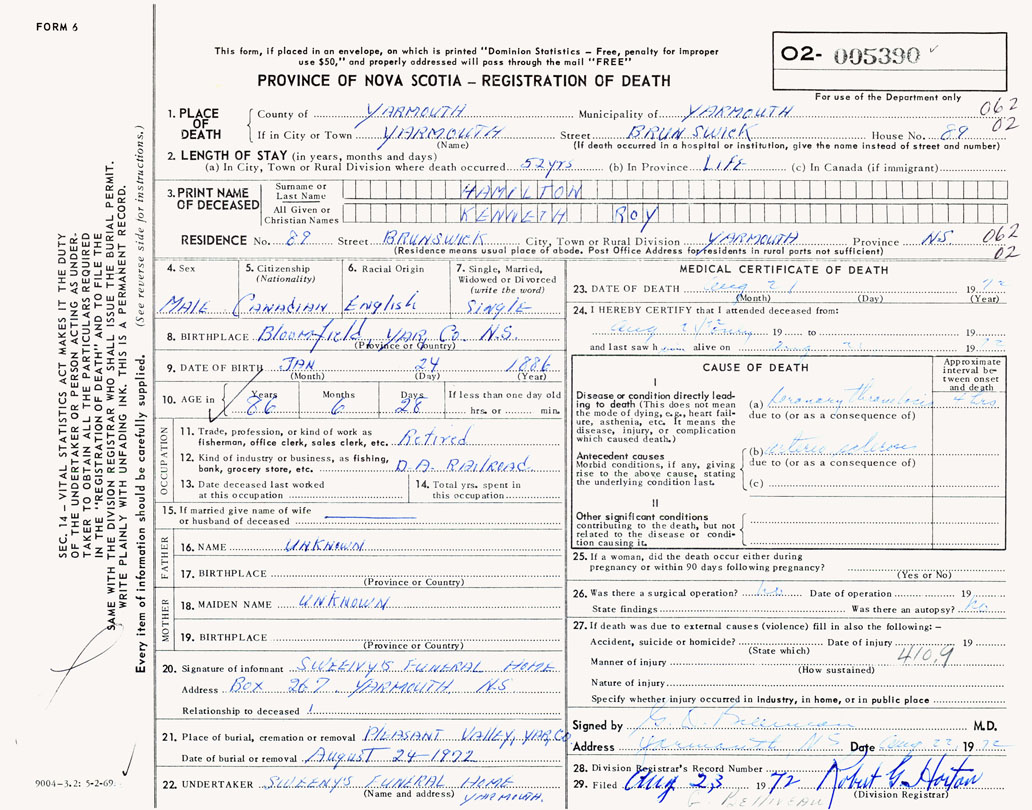 FORM 6
This form, if placed in an envelope, on which is printed "Dominion Statistics — Free, penalty for improper
use $50," and properly addressed will pass through the mail "FREE"
PROVINCE OF NOVA SCOTIA — REGISTRATION OF DEATH
O2- 005390
For use of the Department only
062
02
1. PLACE OF DEATH
County of YARMOUTH Municipality of YARMOUTH
If in City or Town YARMOUTH Street BRUNSWICK House No. 89
(Name) (If death occurred in a hospital or institution, give the name instead of street and number)
2. LENGTH OF STAY (in years, months and days)
(a) In City, Town or Rural Division where death occurred 52 yrs (b) In Province LIFE (c) In Canada (if immigrant)
3. PRINT NAME OF DECEASED
Surname or Last Name HAMILTON
All Given or Christian Names KENNETH ROY
RESIDENCE No. 89 Street BRUNSWICK City, Town or Rural Division YARMOUTH Province NS 062
(Residence means usual place of abode. Post Office Address for residents in rural parts not sufficient) 02
4. Sex
MALE
5. Citizenship (Nationality)
CANADIAN
6. Racial Origin
English
7. Single, Married, Widowed or Divorced (write the word)
Single
8. BIRTHPLACE Bloomfield YAR. Co. N.S.
(Province or Country)
9. DATE OF BIRTH JAN 24 1886
(Month) (Day) (Year)
10. AGE in
Years Months Days If less than one day old
86 6 28 hrs. or min.
OCCUPATION
11. Trade, profession, or kind of work as
fisherman, office clerk, sales clerk, etc. Retired
12. Kind of industry or business, as fishing,
bank, grocery store, etc. D.A. RAILROAD
13. Date deceased last worked
at this occupation
14. Total yrs. spent in
this occupation
15. If married give name of wife
or husband of deceased
FATHER
16. NAME UNKNOWN
17. BIRTHPLACE
(Province or Country)
MOTHER
18. MAIDEN NAME UNKNOWN
19. BIRTHPLACE
(Province or Country)
20. Signature of informant SWEENY'S FUNERAL HOME
Address BOX 267 YARMOUTH N.S
Relationship to deceased
21. Place of burial, cremation or removal PLEASANT VALLEY, YAR, CO
Date of burial or removal AUGUST 24-1972
22. UNDERTAKER SWEENY'S FUNERAL HOME
(Name and address) YARMOUTH.
MEDICAL CERTIFICATE OF DEATH
23. DATE OF DEATH Aug 21 1972
(Month) (Day) (Year)
24. I HEREBY CERTIFY that I attended deceased from:
Aug 19 to 19
and last saw h alive on 1972
CAUSE OF DEATH
Approximate interval between onset and death
I
Disease or condition directly leading to death (This does not mean
the mode of dying, e.g., heart failure, asthenia, etc. It means the
disease, injury, or complication
which caused death.)
(a) Coronary thrombosis 4 hrs
due to (or as a consequence of)
Antecedent causes
Morbid conditions, if any, giving
rise to the above cause, stating
the underlying condition last.
(b) arterio sclerosis
due to (or as a consequence of)
(c)
II
Other significant conditions
contributing to the death, but not
related to the disease or condition causing it.
25. If a woman, did the death occur either during
pregnancy or within 90 days following pregnancy?
(Yes or No)
26. Was there a surgical operation? No Date of operation 19
State findings Was there an autopsy? No
27. If death was due to external causes (violence) fill in also the following: —
Accident, suicide or homicide? Date of injury 19
(State which) 410.9
Manner of injury
(How sustained)
Nature of injury
Specify whether injury occurred in industry, in home, or in public place
Signed by M.D.
Address Yarmouth NS Date Aug 22 1972
28. Division Registrar's Record Number
29. Filed Aug 23 1972 Robert G. Horton
(Division Registrar)
SEC. 14 — VITAL STATISTICS ACT MAKES IT THE DUTY
OF THE UNDERTAKER OR PERSON ACTING AS UNDERTAKER TO OBTAIN ALL THE PARTICULARS REQUIRED
IN THE "REGISTRATION OF DEATH" AND TO FILE THE
SAME WITH THE DIVISION REGISTRAR WHO SHALL ISSUE THE BURIAL PERMIT.
WRITE PLAINLY WITH UNFADING INK. THIS IS A PERMANENT RECORD.
Every item of information should be carefully supplied. (See reverse side for instructions.)
9004-3.2: 5-2-69.